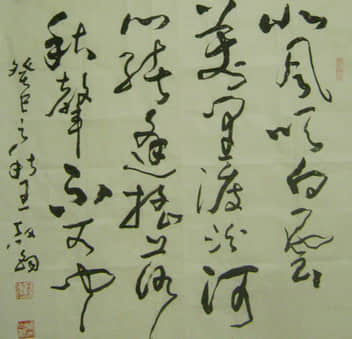 北风吹白雲
萬里渡汾河
心緒逢摇落
秋聲不可聞
癸巳之秋王